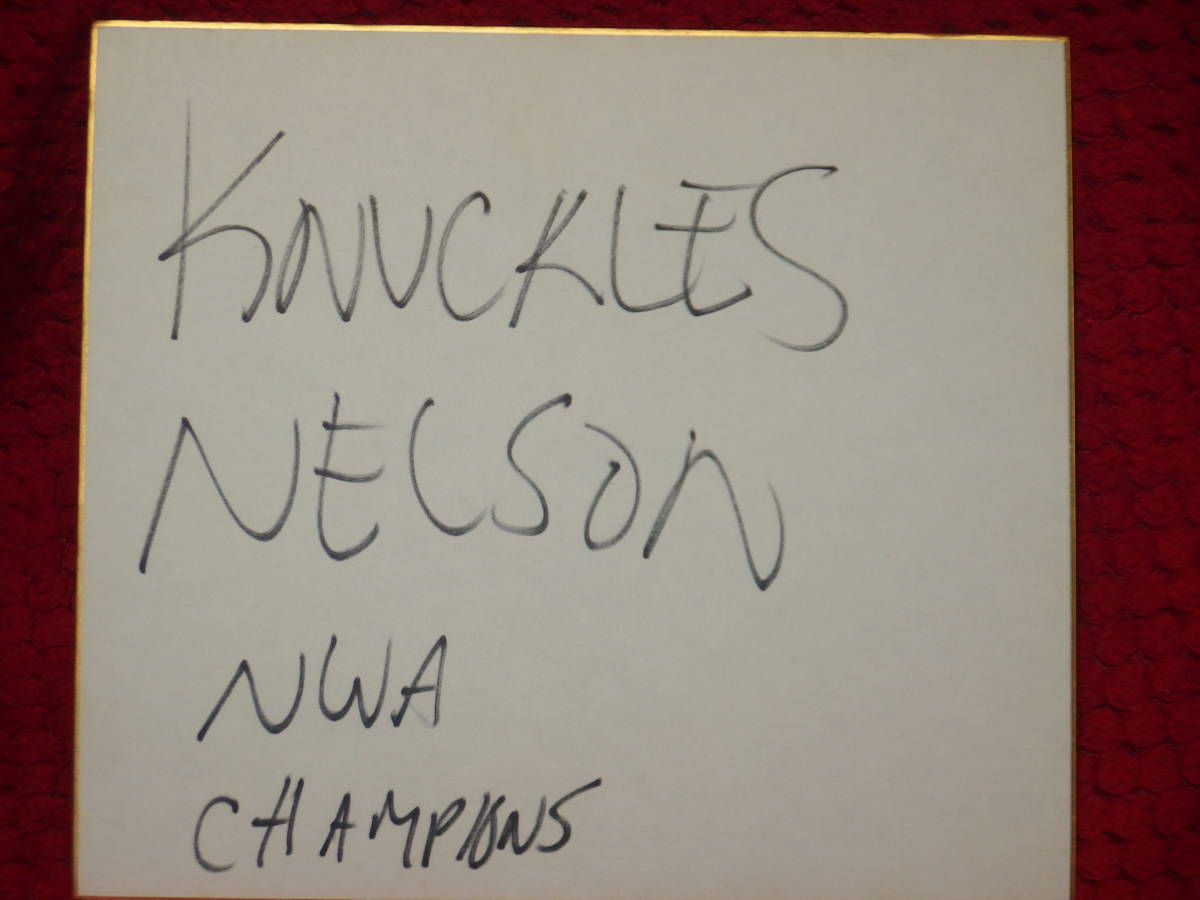 KNUCKLES
NELSON
NWA
CHAMPIONS